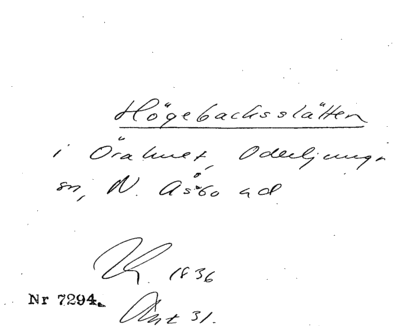 Högebacksslätten
i Örahult, Oderljunga
sn, N. Åsbo hd
1836
Nr 7294.
Akt 31.